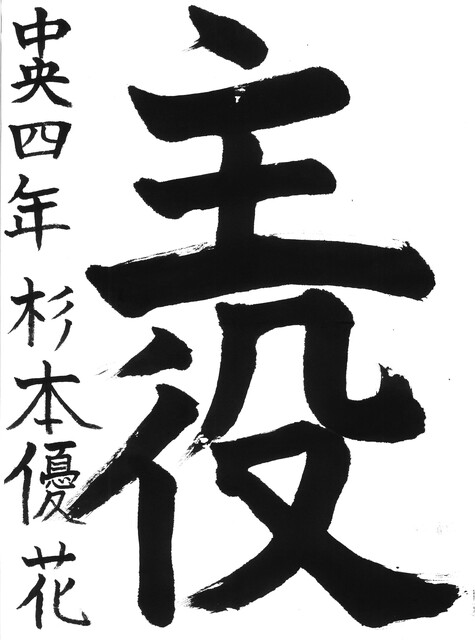 主役
中央四年 杉本優花